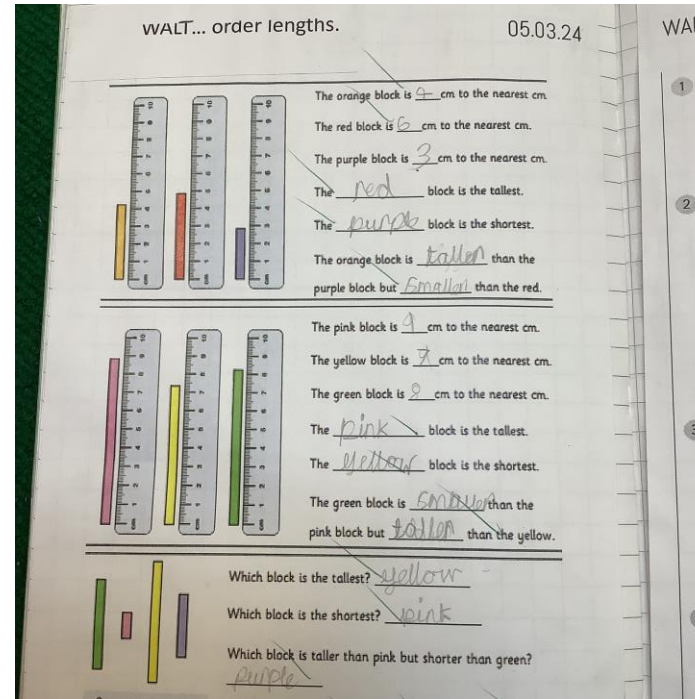 WALT... order lengths.
05.03.24
WA
1
2
The orange block is 4 cm to the nearest cm
The red block is 6 cm to the nearest cm.
The purple block is 3 cm to the nearest cm.
The red block is the tallest.
The purple block is the shortest.
The orange block is taller than the
purple block but smaller than the red.
The pink block is 9 cm to the nearest cm.
The yellow block is 7 cm to the nearest cm.
The green block is 8 cm to the nearest cm.
The pink block is the tallest.
The yellow block is the shortest.
The green block is smaller than the
pink block but taller than the yellow.
Which block is the tallest? yellow
Which block is the shortest? pink
Which block is taller than pink but shorter than green?
purple